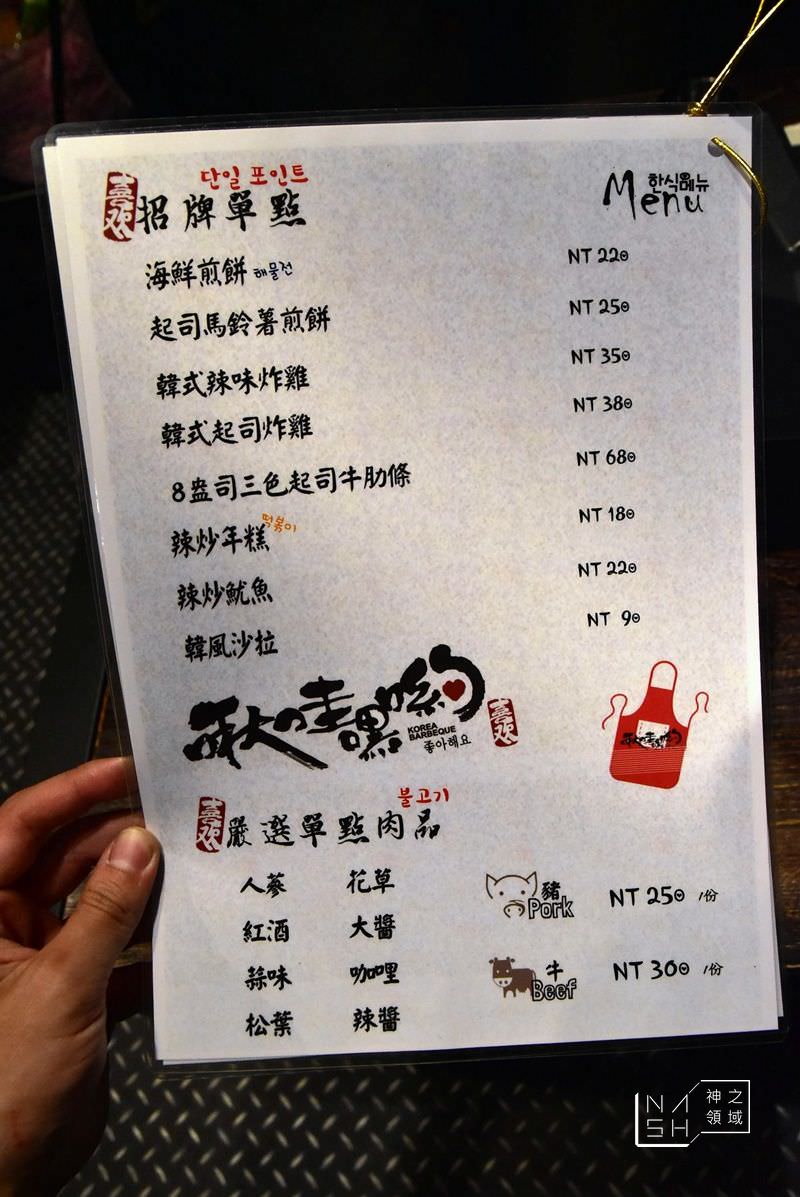 단일 포인트
喜欢 招牌單點
한식메뉴
Menu
海鮮煎餅 해물전 NT 220
起司馬鈴薯煎餅 NT 250
韓式辣味炸雞 NT 350
韓式起司炸雞 NT 380
8盎司三色起司牛肋條 NT 680
辣炒年糕 떡볶이 NT 180
辣炒魷魚 NT 220
韓風沙拉 NT 90
啾哇嘿喲
KOREA
BARBEQUE
좋아해요
喜欢
啾哇嘿喲
불고기
喜欢 嚴選單點肉品
人蔘 花草
紅酒 大醬
蒜味 咖哩
松葉 辣醬
豬
Pork NT 250 /份
牛
Beef NT 300 /份
NASH 神之領域